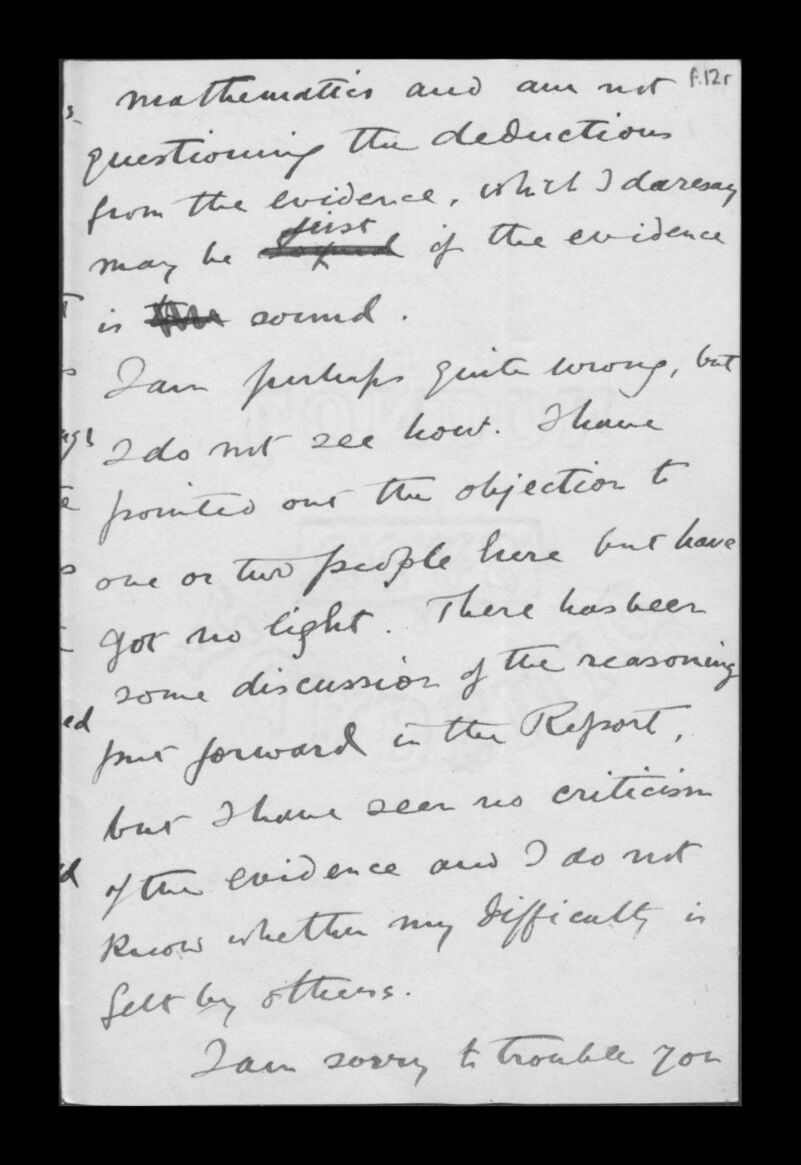 f.12r
mathematics and am not
questioning the deductions
from the evidence, which I daresay
may be just if the evidence
is sound.
I am perhaps quite wrong, but
I do not see how. I have
pointed out the objection to
one or two people here but have
got no light. There has been
some discussion of the reasoning
put forward in the Report,
but I have seen no criticism
of the evidence and I do not
know whether my difficulty is
felt by others.
I am sorry to trouble you